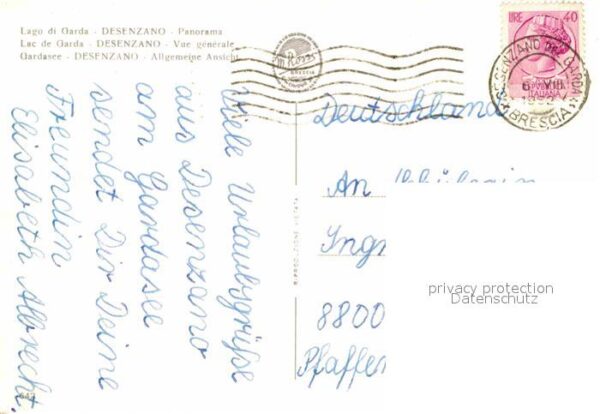 Lago di Garda - DESENZANO - Panorama
Lac de Garda - DESENZANO - Vue générale
Gardasee - DESENZANO - Allgemeine Ansicht
LIRE 40
DESENZANO DEL GARDA
BRESCIA
ITALIANA
Viele Urlaubsgrüße
aus Desenzano
am Gardasee
sendet Dir Deine
Freundin
Elisabeth Albrecht.
Deutschland
An
Ing
8800
Pfaffe
privacy protection
Datenschutz